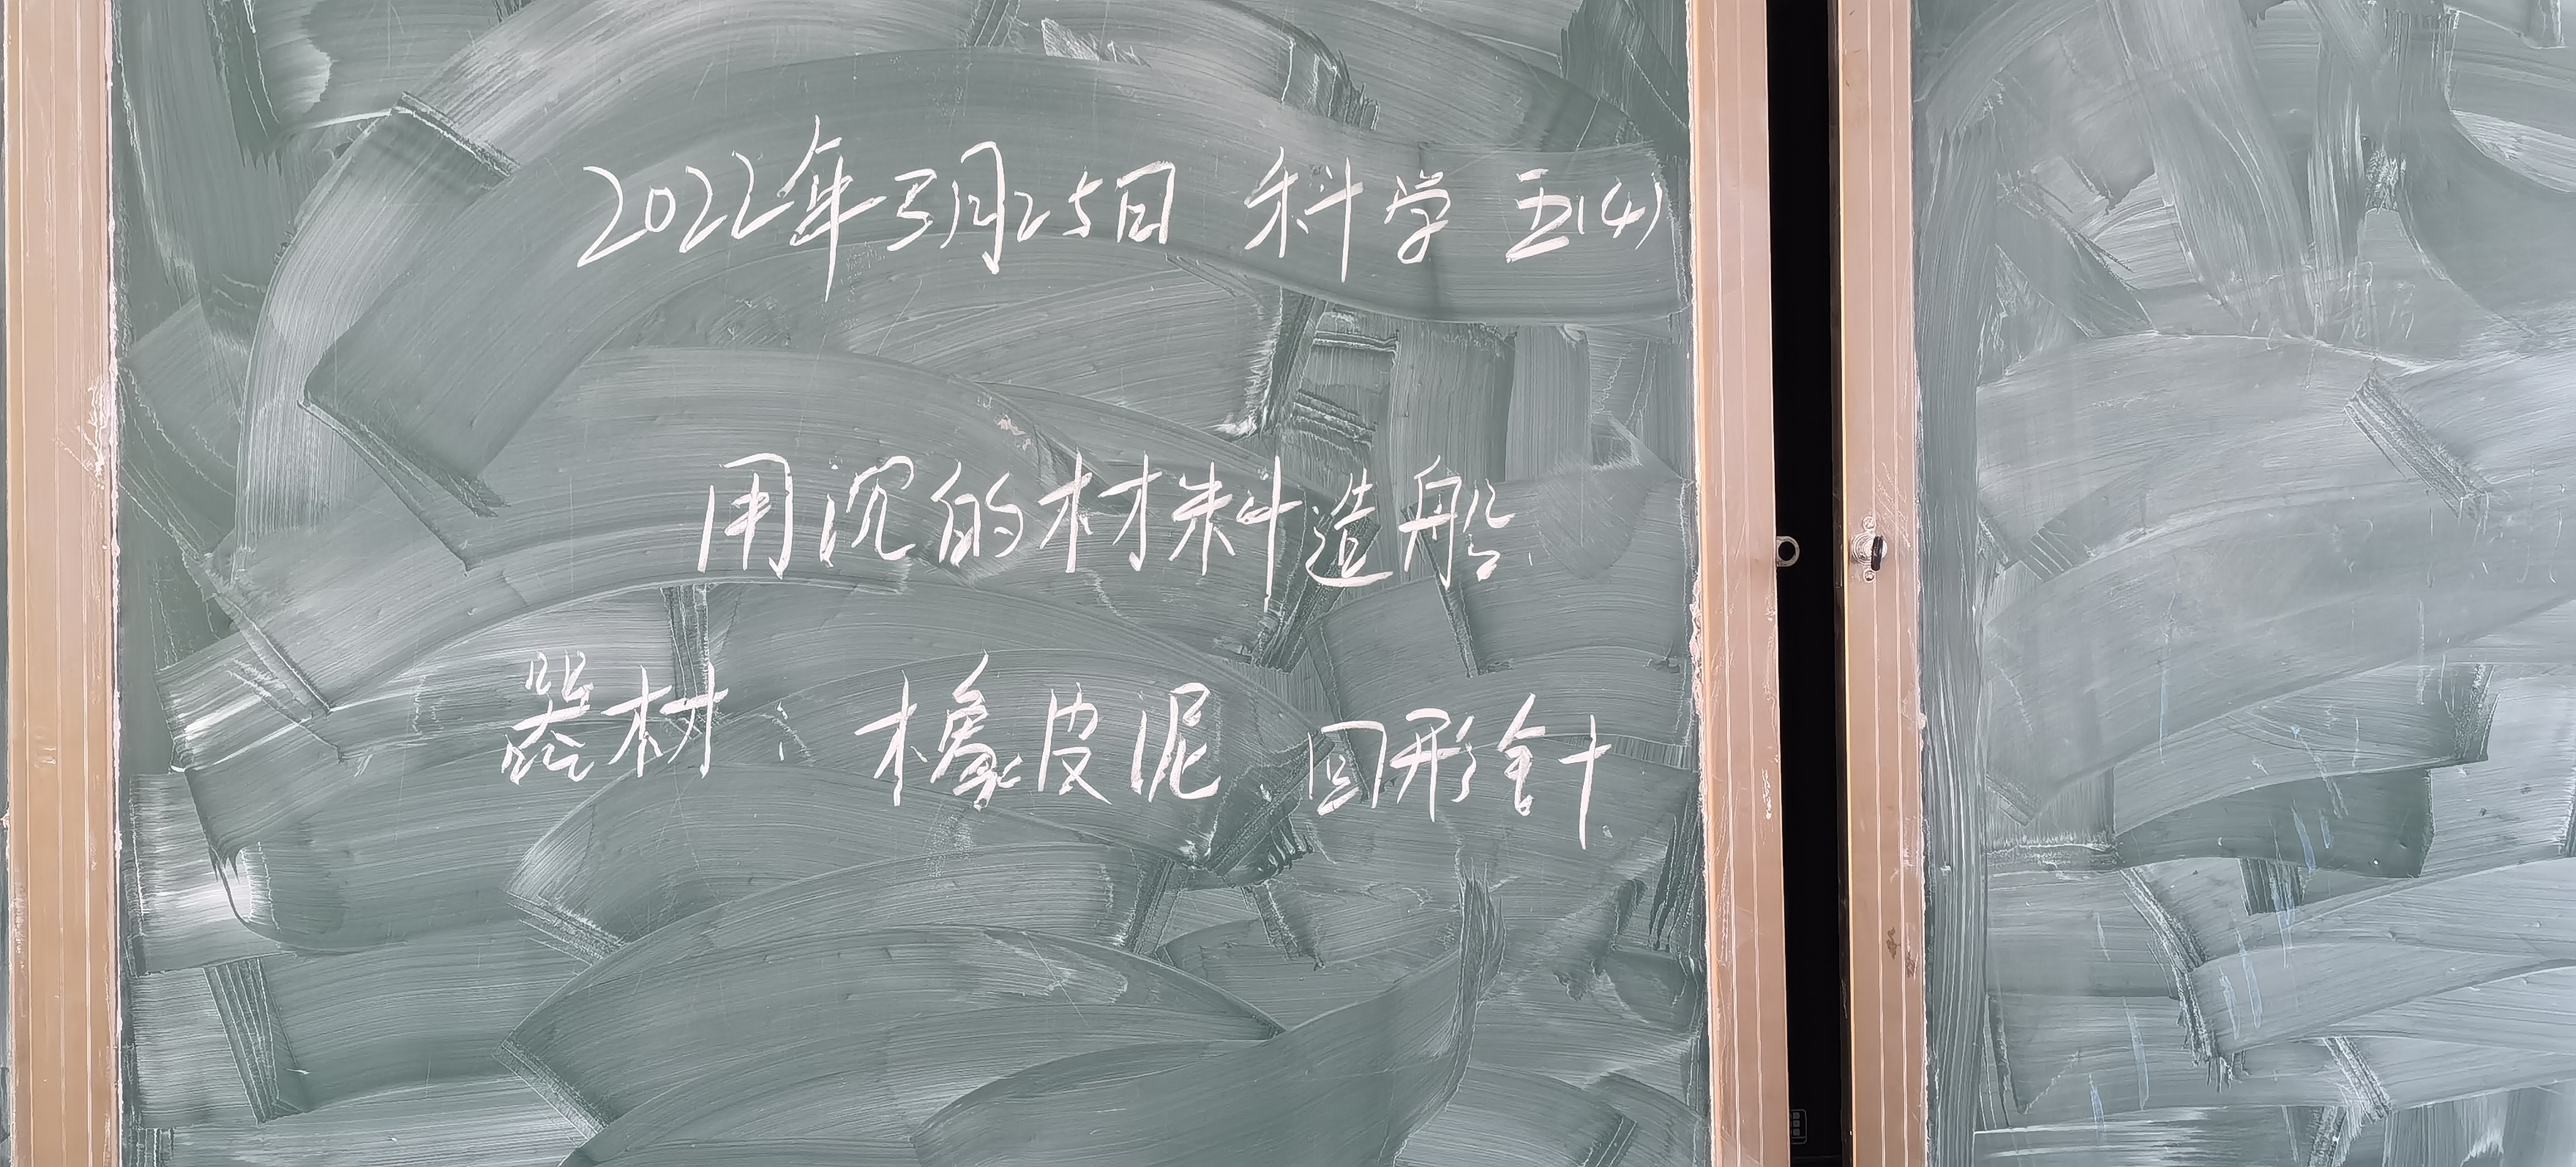 2022年3月25日 科学 五(4)
用沉的材料造船
器材: 橡皮泥 回形针